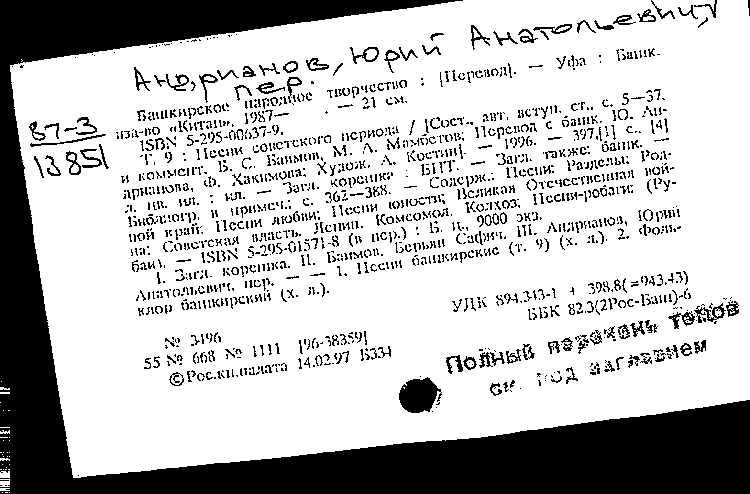 Андрианов, Юрий Анатольевич,
пер.
87-3
13851
Башкирское народное творчество : [Перевод]. — Уфа : Башк.
изд-во «Китап», 1987— . — 21 см.
ISBN 5-295-00637-9.
Т. 9 : Песни советского периода / [Сост., авт. вступ. ст., с. 5—37,
и коммент. Б. С. Баимов, М. А. Мамбетов; Перевод с башк. Ю. Ан-
дрианова, Ф. Хакимова; Худож. А. Костин]. — 1996. — 397,[1] с., [4]
л. цв. ил. : ил. — Загл. корешка : БНТ. — Загл. также: башк. —
Библиогр. в примеч.: с. 362—388. — Содерж.: Песни: Разделы: Род-
ной край; Песни любви; Песни юности; Великая Отечественная вой-
на; Советская власть. Ленин. Комсомол. Колхоз; Песни-робаги: (Ру-
баи). — ISBN 5-295-01571-8 (в пер.) : Б. ц., 9000 экз.
I. Загл. корешка. II. Баимов, Берьян Сафич. III. Андрианов, Юрий
Анатольевич, пер. — — 1. Песни башкирские (т. 9) (х. л.). 2. Фольк-
клор башкирский (х. л.).
УДК 894.343-1 + 398.8(=943.43)
ББК 82.3(2Рос-Баш)-6
№ 3496
55 № 668 № 1111 [96-38359]
© Рос.кн.палата 14.02.97 Б334
Полный перечень томов
см. под заглавием